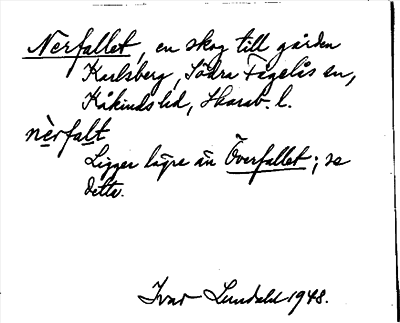 Nerfallet, en skog till gården
Karlsberg, Södra Fågelås sn,
Kåkinds hd, Skarab. l.
nèrfalt
Ligger lägre än Överfallet; se
detta.
Ivar Lundahl 1948.